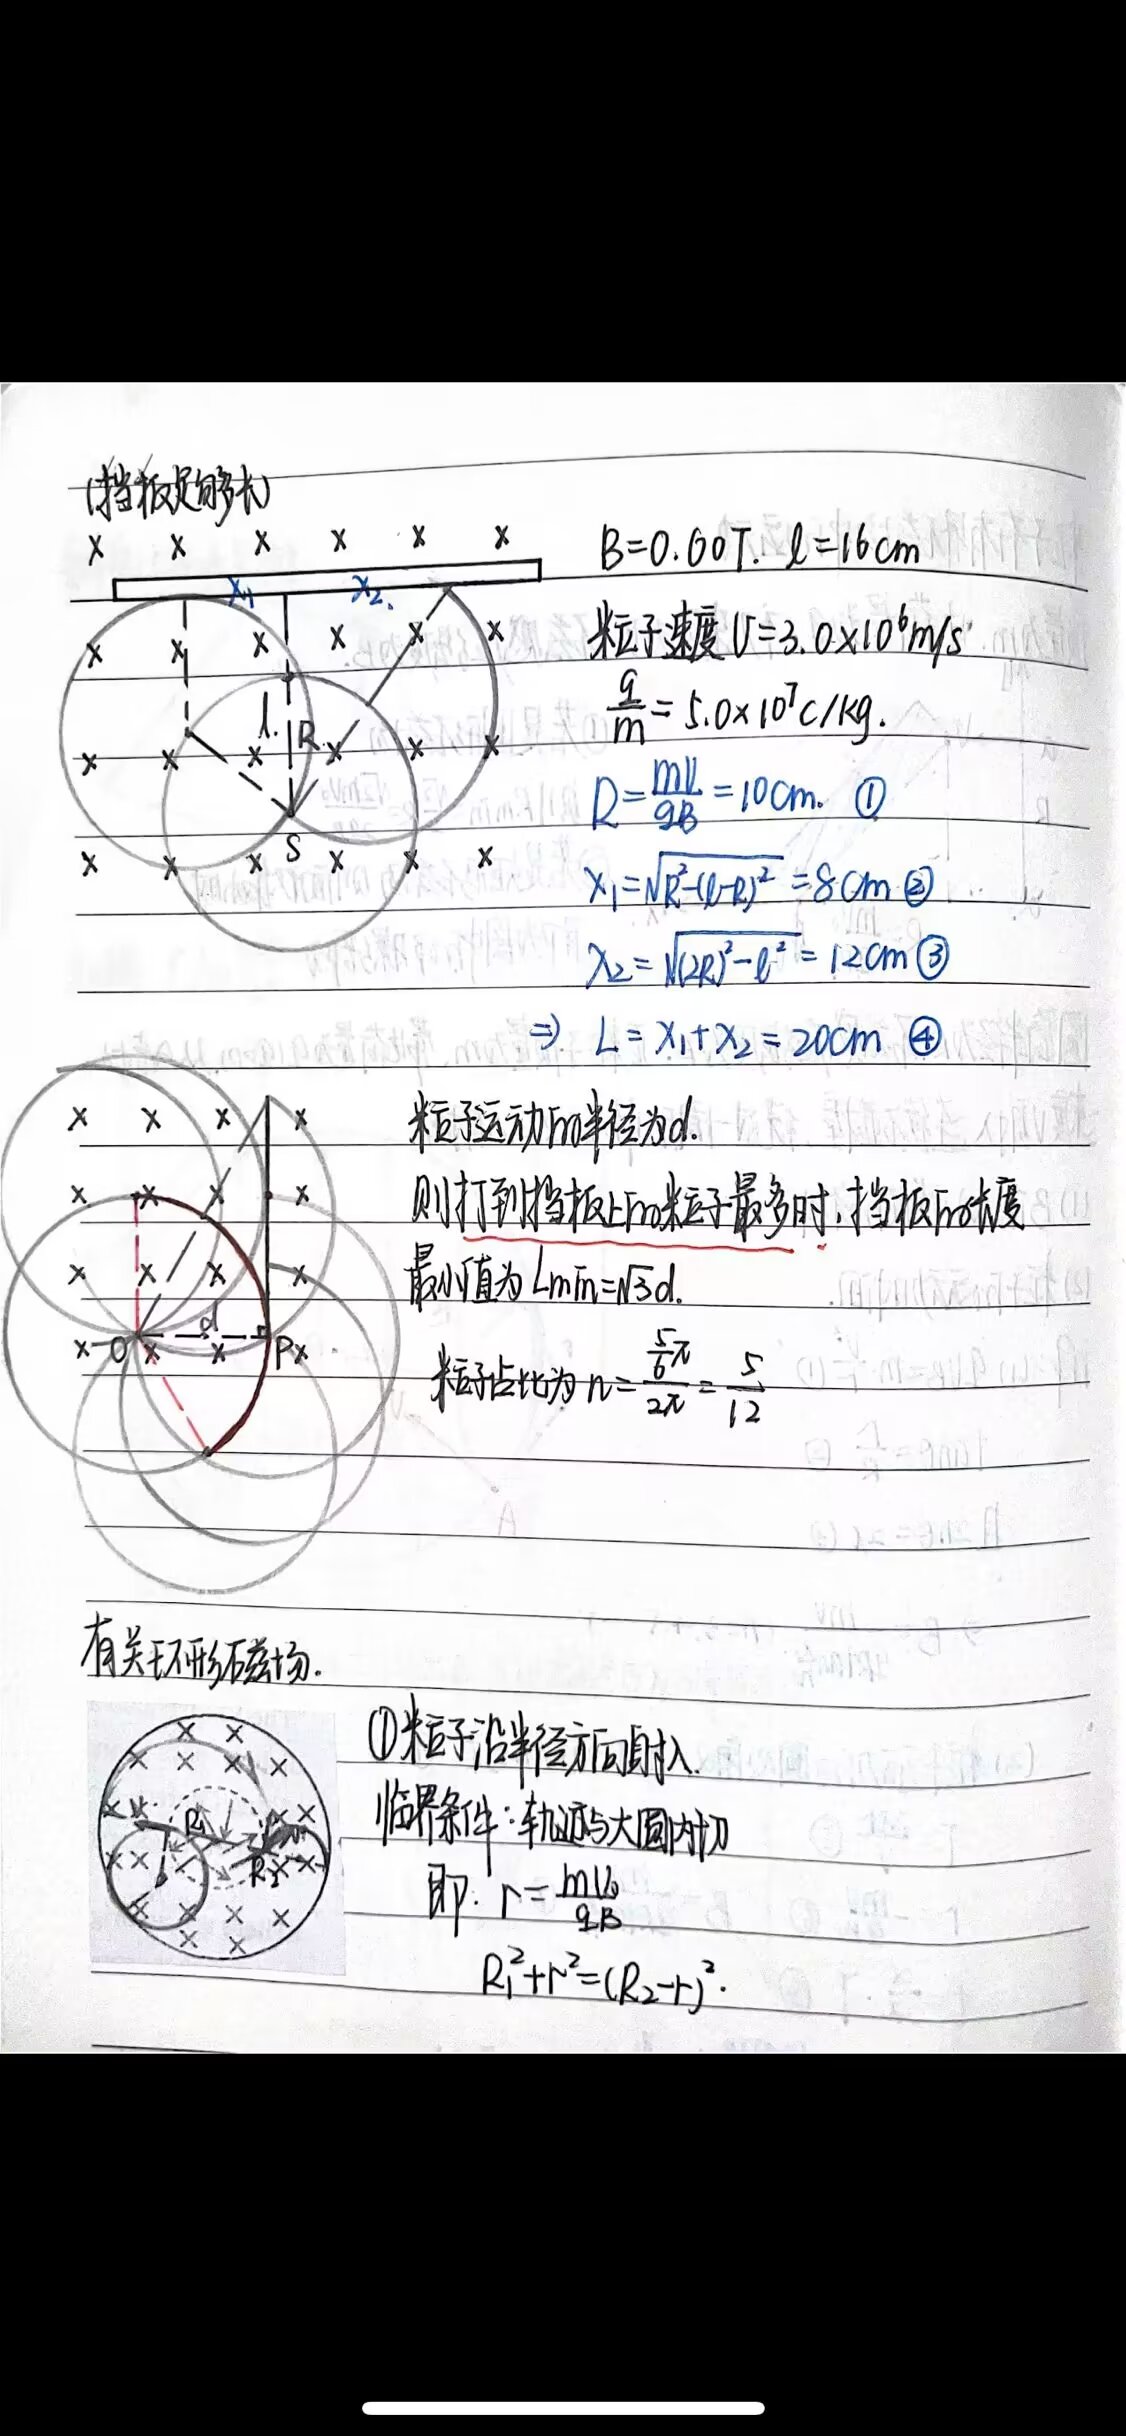 (挡板足够长)
x₁ x₂.
l. R
S
B=0.60T. l=16cm
粒子速度V=3.0×10⁶m/s
q/m=5.0×10⁷C/kg.
R=mV/qB=10cm. ①
x₁=√(R²-(l-R)²)=8cm ②
x₂=√((2R)²-l²)=12cm ③
⇒ L=x₁+x₂=20cm ④
O d P
粒子运动的半径为d.
则打到挡板上的粒子最多时,挡板的长度
最小值为Lmin=√3d.
粒子占比为n=(5/6π)/2π=5/12
有关环形磁场.
R₁
R₂
①粒子沿半径方向射入.
临界条件:轨迹与大圆内切
即:r=mV₀/qB
R₁²+r²=(R₂-r)².